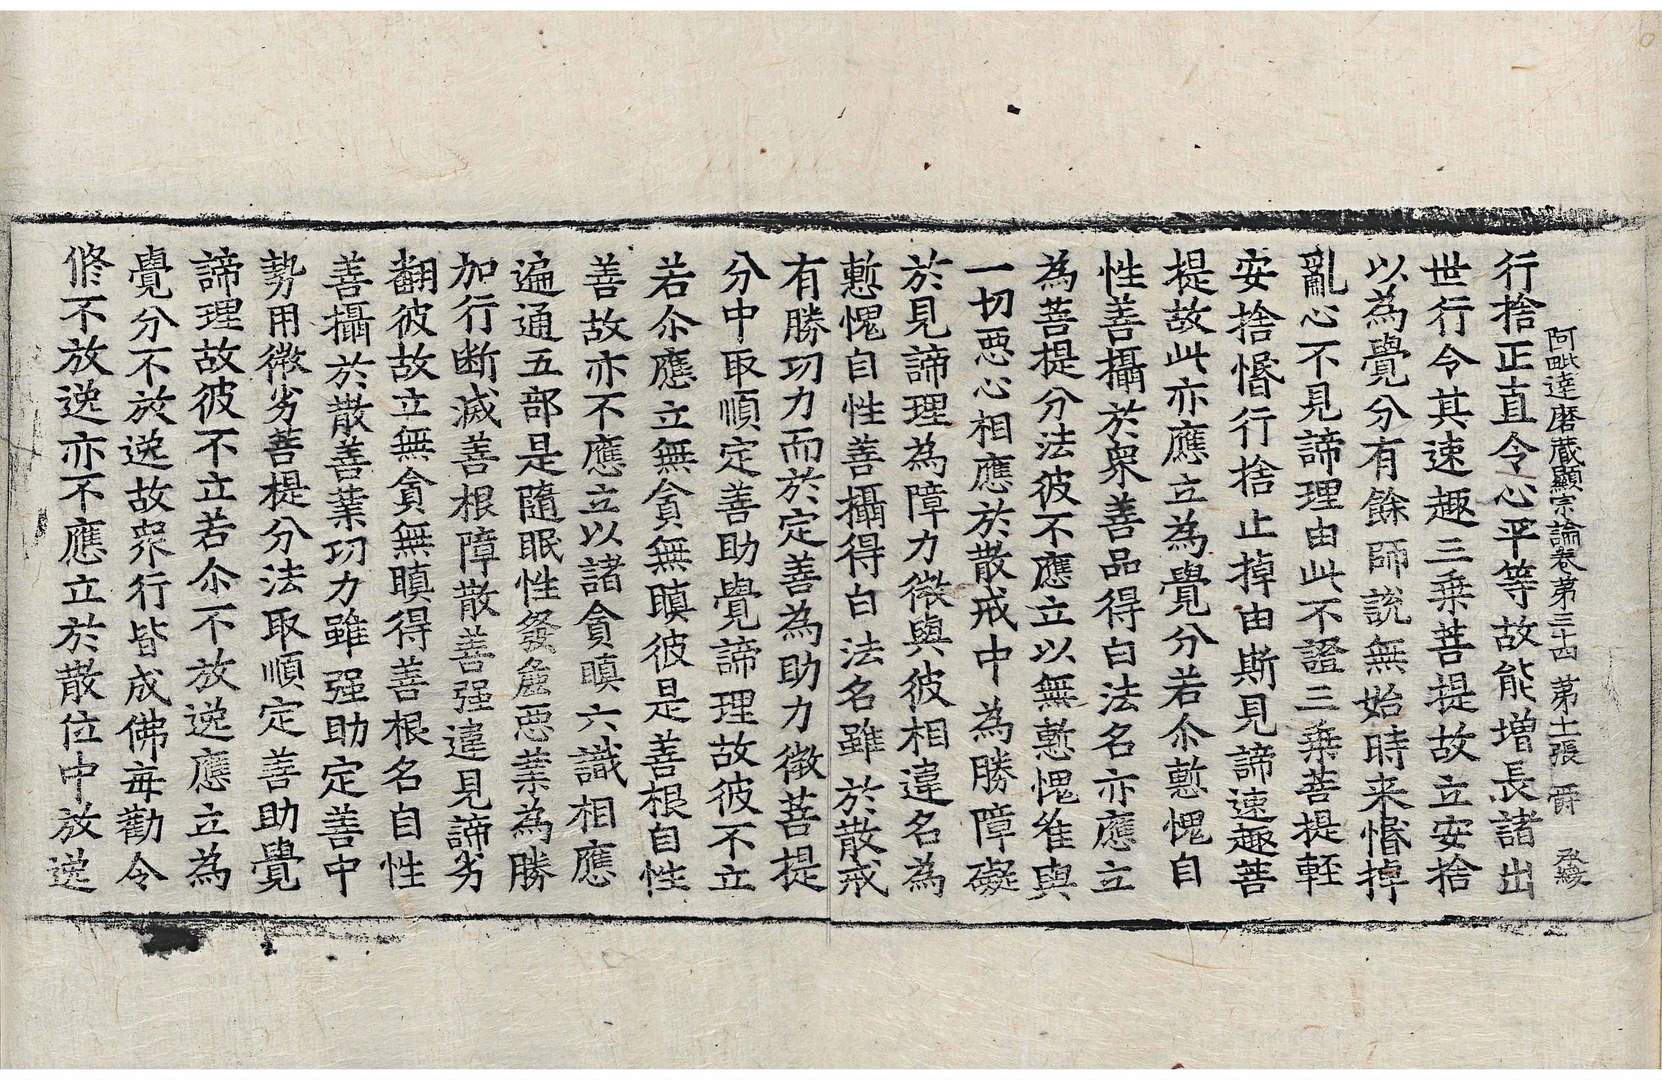 阿毗達磨蔵顯宗論卷第三十四 第十二張 爵 永綏
行捨正直令心平等故能增長諸出
世行令其速趣三乗菩提故立安捨
以為覺分有餘師說無始時来惛掉
亂心不見諦理由此不證三乗菩提輕
安捨惛行捨止掉由斯見諦速趣菩
提故此亦應立為覺分若尒慙愧自
性善攝於衆善品得白法名亦應立
為菩提分法彼不應立以無慙愧唯與
一切惡心相應於散戒中為勝障礙
於見諦理為障力微與彼相違名為
慙愧自性善攝得白法名雖於散戒
有勝功力而於定善為助力微菩提
分中取順定善助覺諦理故彼不立
若尒應立無貪無瞋彼是善根自性
善故亦不應立以諸貪瞋六識相應
遍通五部是隨眠性發麁惡業為勝
加行断滅善根障散善强違見諦劣
翻彼故立無貪無瞋得善根名自性
善攝於散善業功力雖强助定善中
勢用微劣菩提分法取順定善助覺
諦理故彼不立若尒不放逸應立為
覺分不放逸故衆行皆成佛每勸令
修不放逸亦不應立於散位中放逸